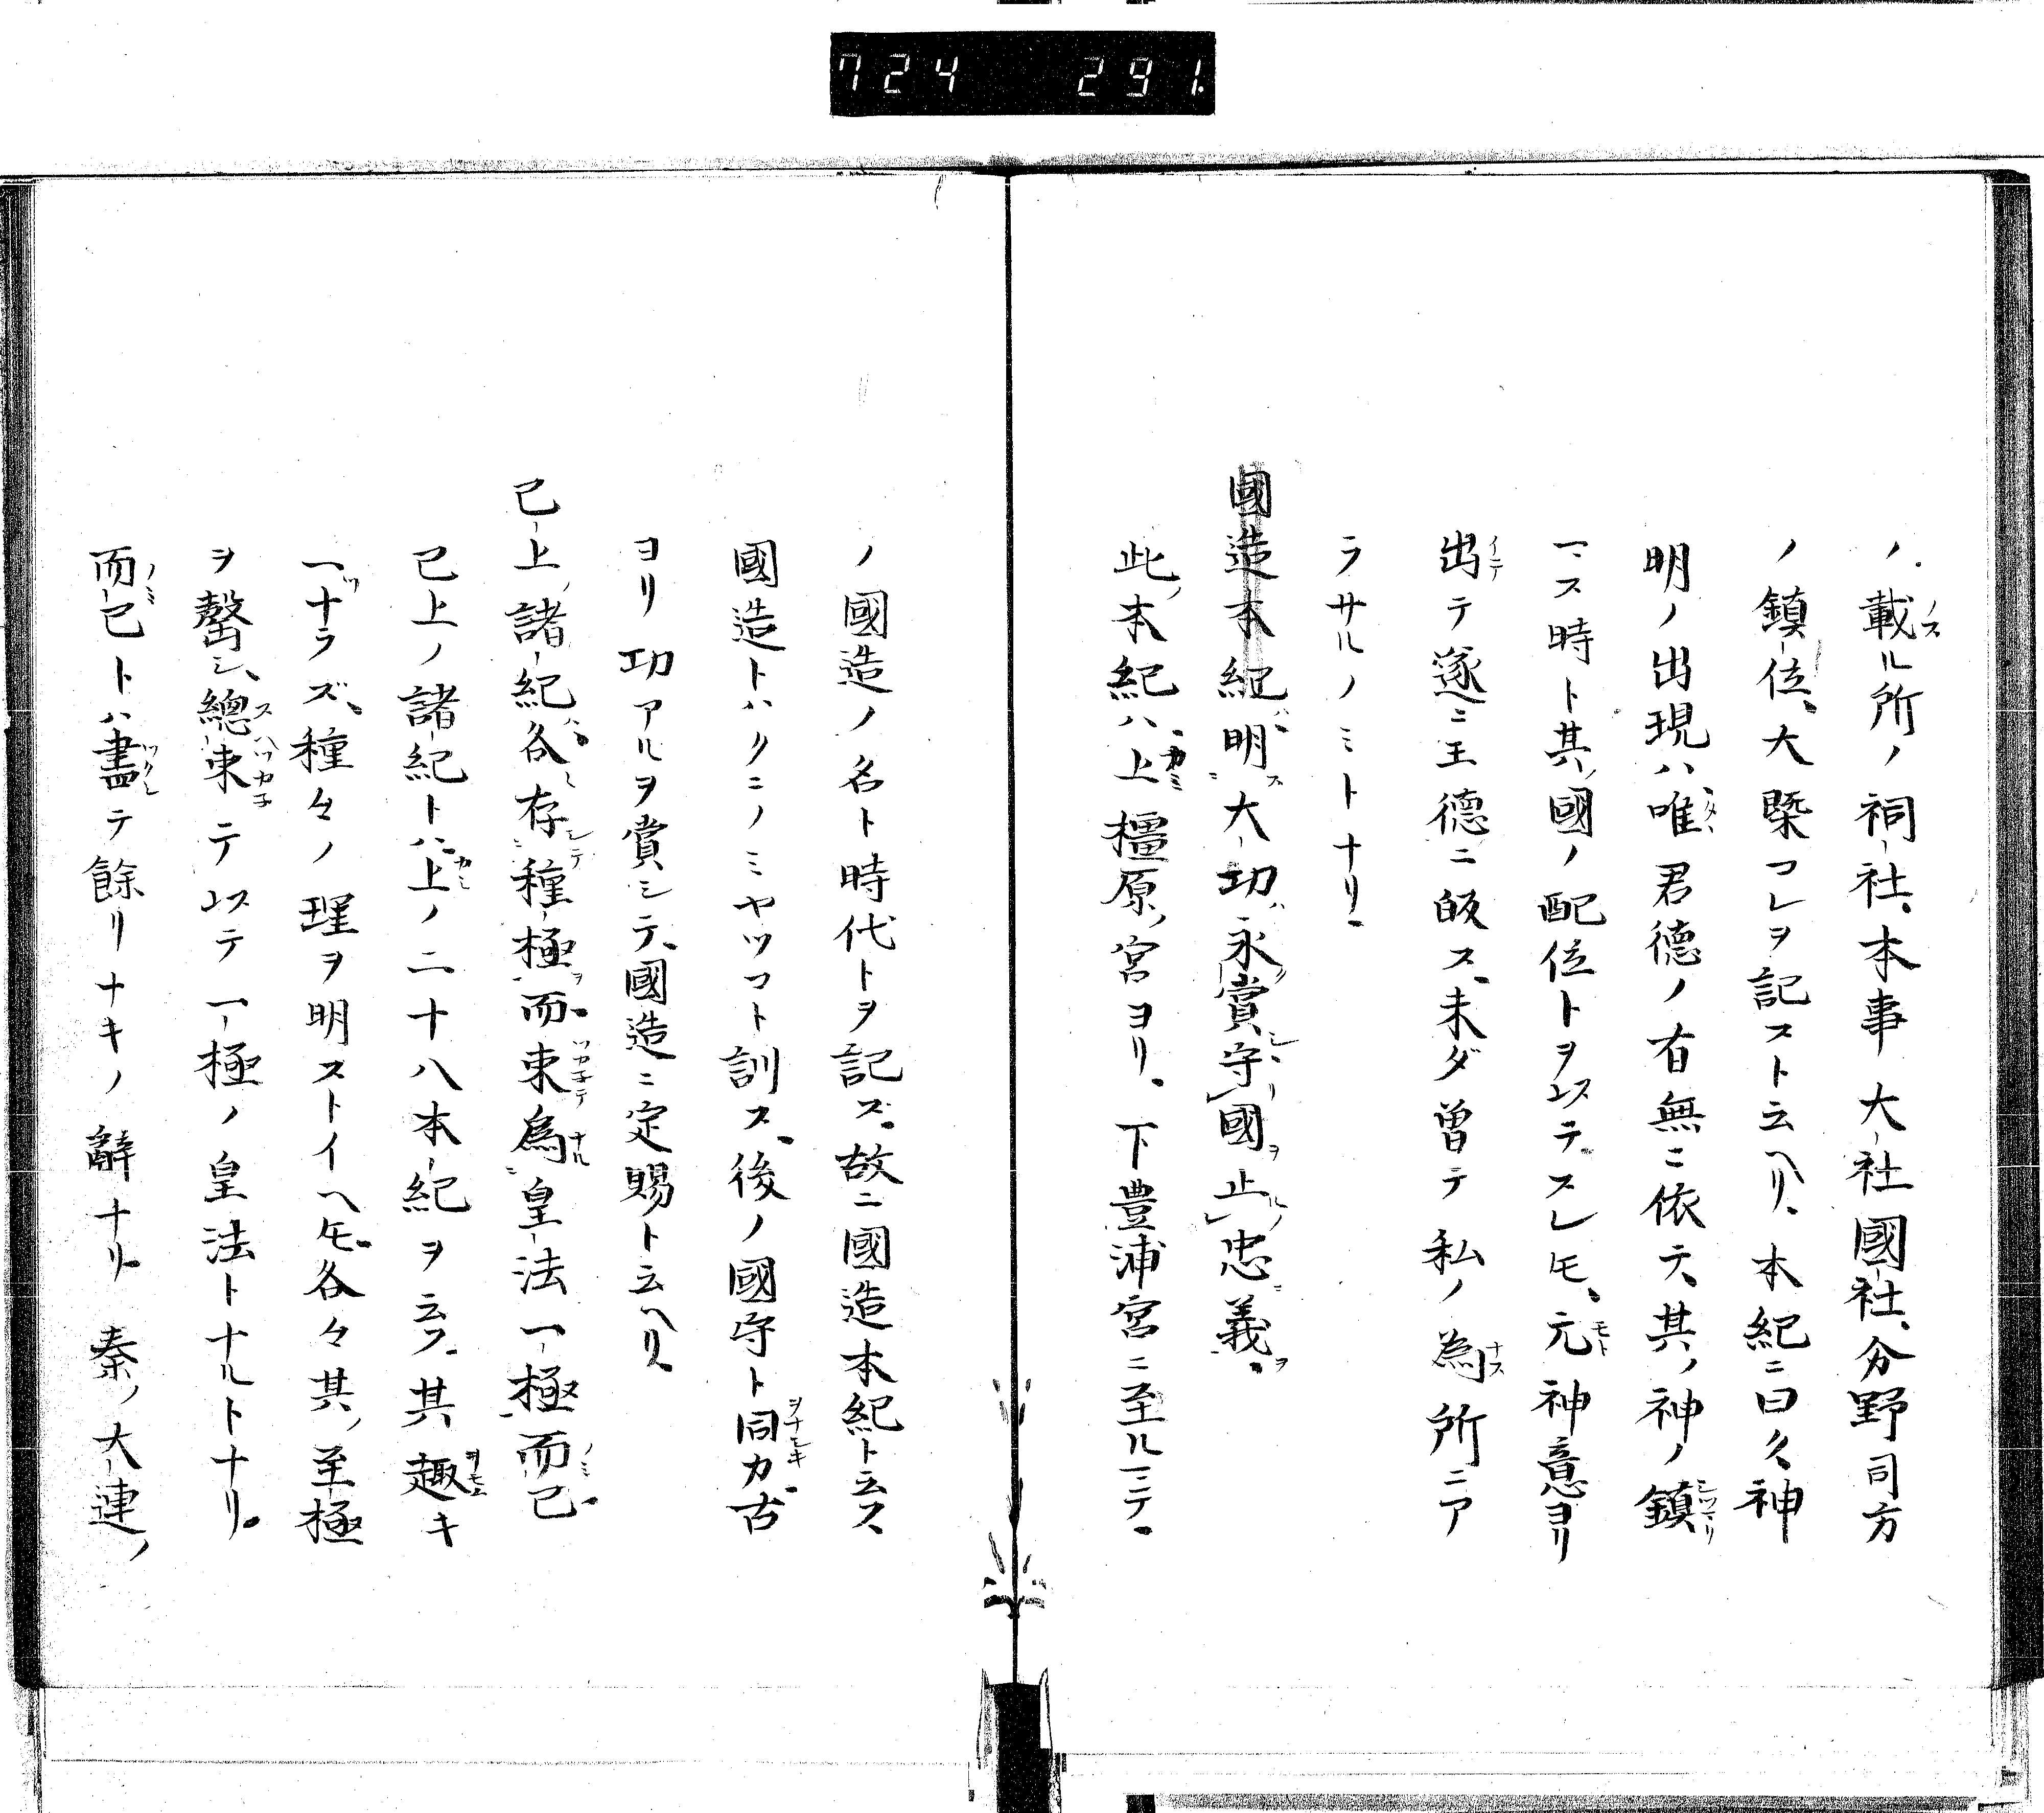 724 291.
ノ載ル所ノ祠社、本事大社國社、分野司方
ノ鎮位、大槩コレヲ記スト云ヘリ、本紀ニ曰ク、神
明ノ出現ハ唯君德ノ有無ニ依テ、其ノ神ノ鎮
一ス時ト其ノ國ノ配位トヲ以テスレモ、元神意ヨリ
出テ遂ニ王德ニ皈ス、未ダ曽テ私ノ為所ニア
ラサルノミトナリ、
國造本紀明大功永賞守國止忠義。
此ノ本紀ハ上橿原ノ宮ヨリ、下豊浦宮ニ至ルニテ、
ノ國造ノ名ト時代トヲ記ス、故ニ國造本紀ト云フ、
國造トハクニノミヤツコト訓ス、後ノ國守ト同カ、古
ヨリ功アルヲ賞シテ、國造ニ定賜ト云ヘリ、
已上ノ諸紀各存種極而束為皇法一極而已
已上ノ諸紀トハ上ノ二十八本紀ヲ云フ、其趣キ
一ナラズ、種々ノ理ヲ明ストイヘモ、各々其ノ至極
ヲ罄シ、總束テ以テ一極ノ皇法トナルトナリ。
而已トハ盡テ餘リナキノ辭ナリ、秦ノ大連ノ